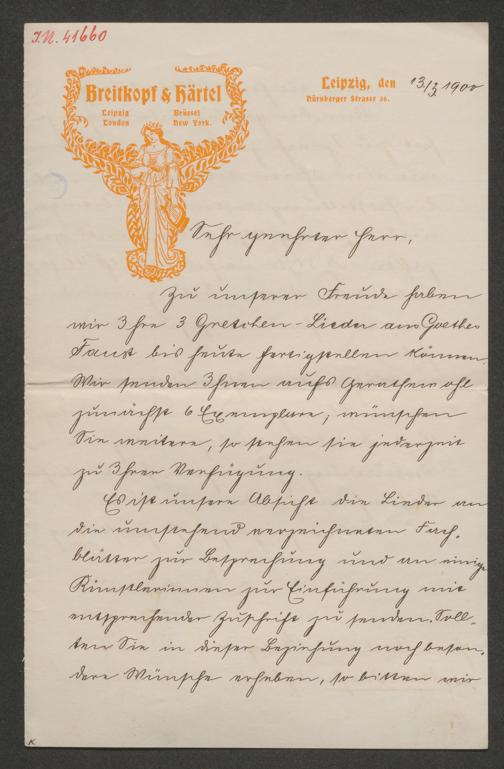 I.N. 41660
Breitkopf & Härtel
Leipzig Brüssel
London New York.
Leipzig, den 13/3 1900
Nürnberger Strasse 36.
Sehr geehrter Herr,
Zu unserer Freude haben
wir Ihre 3 Gretchen-Lieder aus Goethes
Faust bis heute fertigstellen können.
Wir senden Ihnen aufs Gerathewohl
zunächst 6 Exemplare; wünschen
Sie weitere, so stehen sie jederzeit
zu Ihrer Verfügung.
Es ist unsere Absicht die Lieder an
die umstehend verzeichneten Fach-
blätter zur Besprechung und an einige
Künstlerinnen zur Einführung mit
entsprechender Zuschrift zu senden. Soll-
ten Sie in dieser Beziehung noch beson-
dere Wünsche erheben, so bitten wir
K